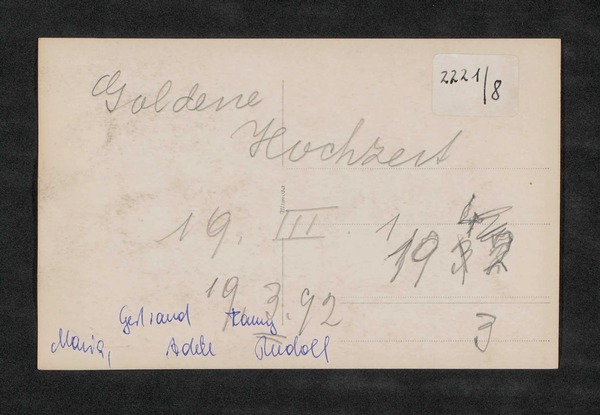 2221/8
Goldene
Hochzeit
19. III. 19
19. 3. 92
3
Gertraud Fanny
Maria, Adele Rudolf